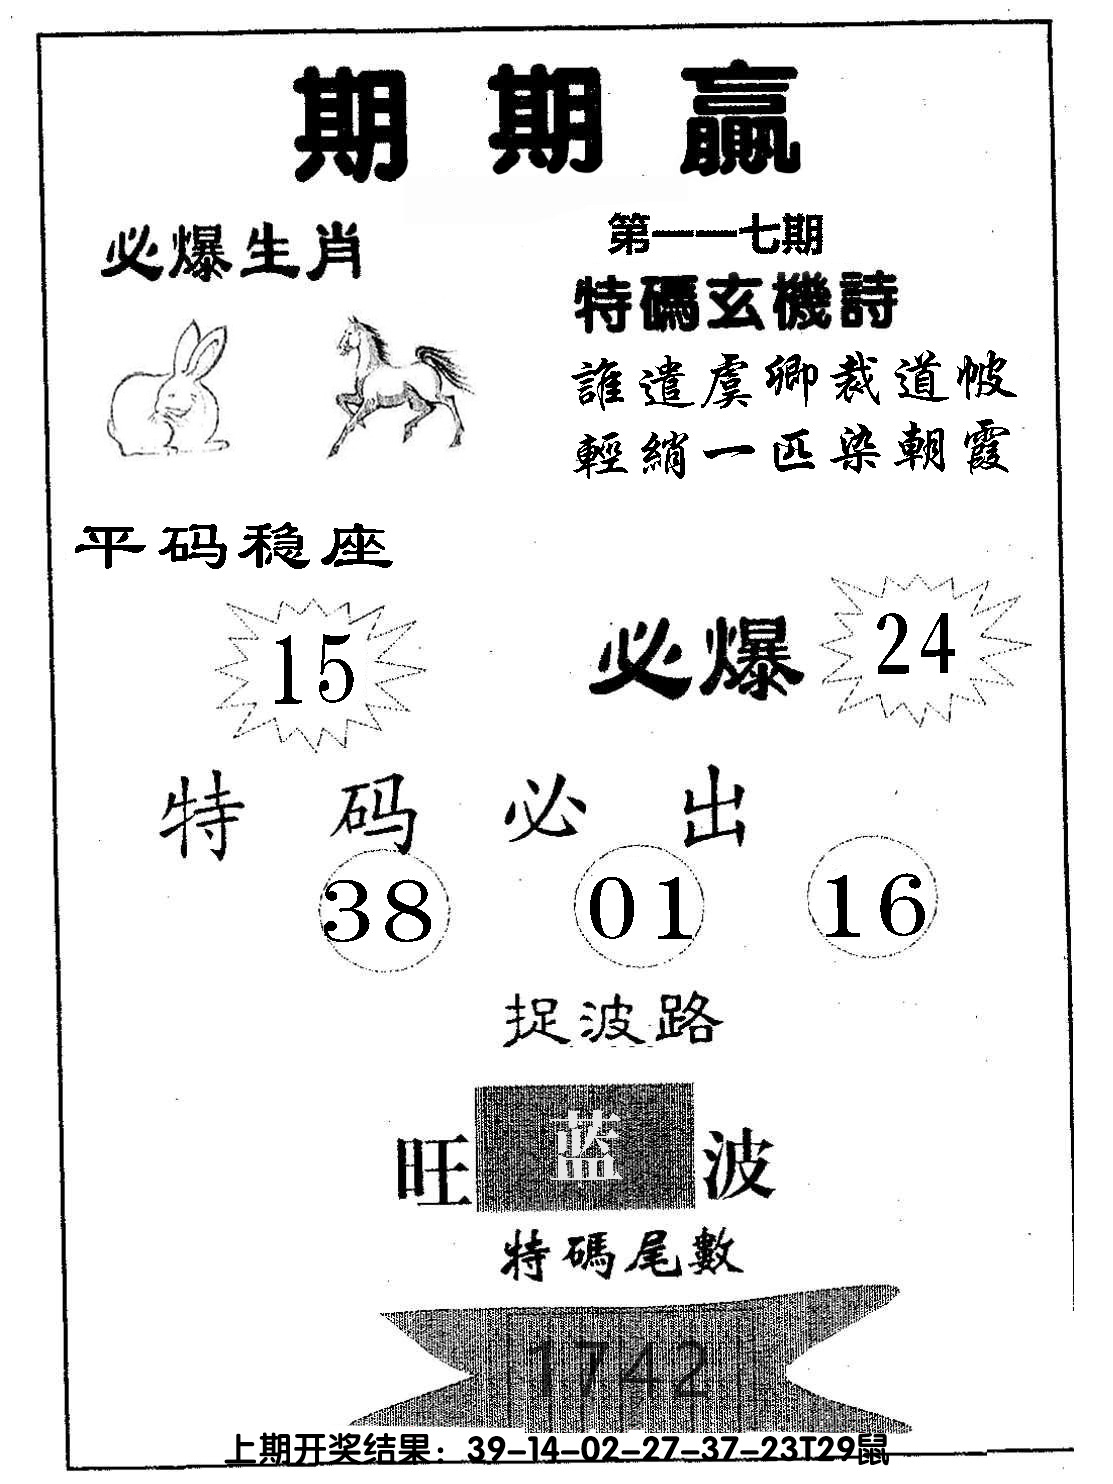 期期赢
必爆生肖
第一一七期
特碼玄機詩
誰遣虞卿裁道帔
輕綃一匹染朝霞
平码稳座
15
必爆
24
特码必出
38 01 16
捉波路
旺蓝波
特碼尾數
1742
上期开奖结果：39-14-02-27-37-23T29鼠